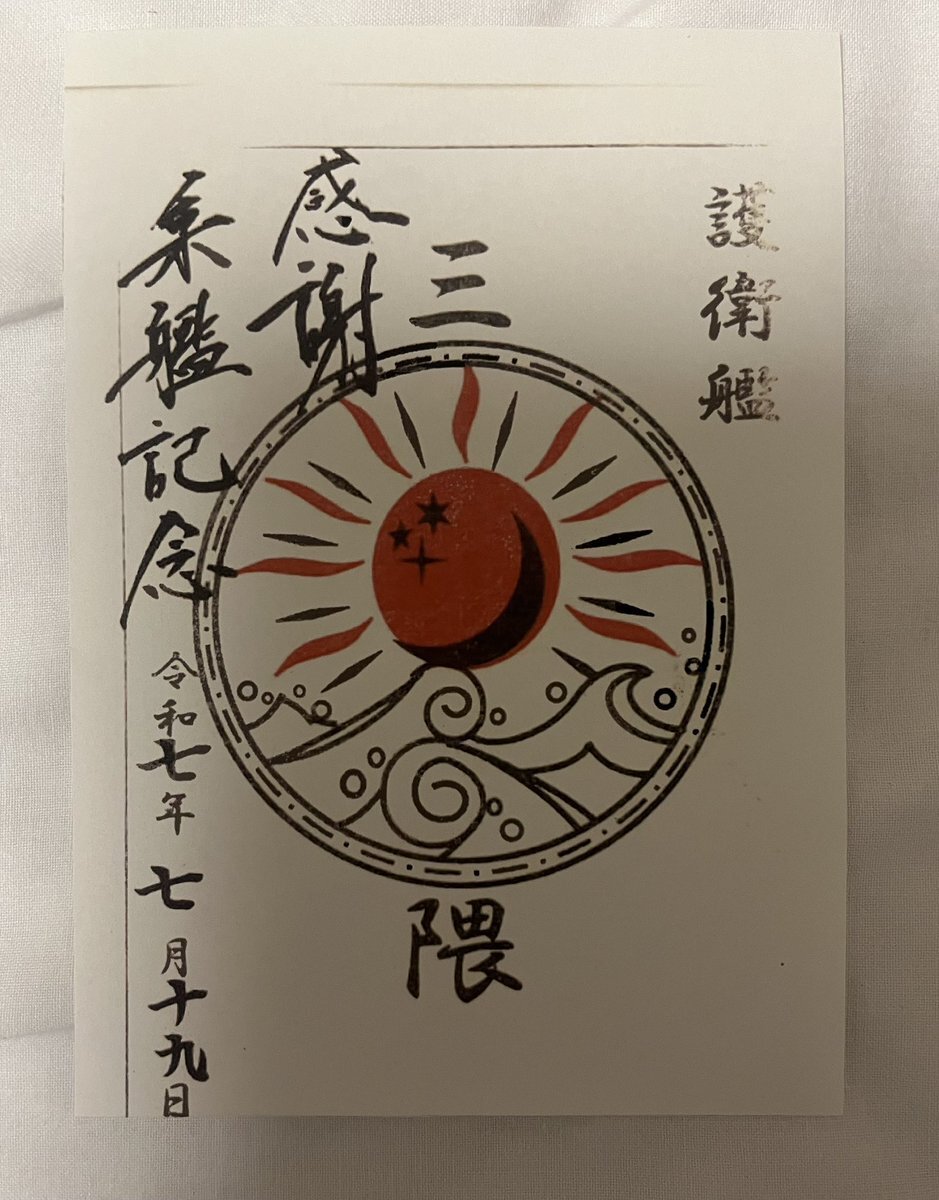 護衛艦
三
隈
感謝
乗艦記念
令和七年七月十九日